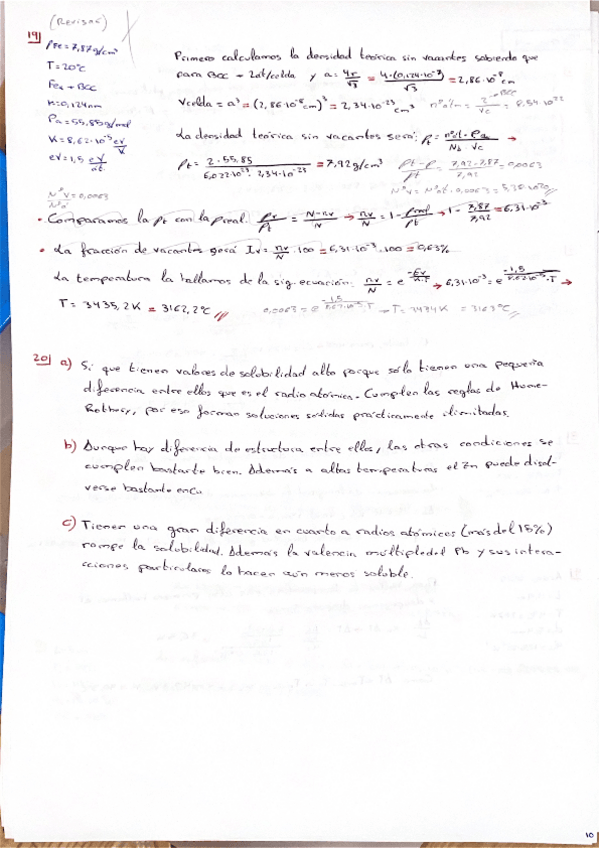 (Revisar)
19)
ρFe = 7,87 g/cm³
T = 20ºC
Feα → BCC
r = 0,124 nm
Pa = 55,85 g/mol
K = 8,62·10⁻⁵ eV/K
eV = 1,5 eV/at.
Primero calculamos la densidad teórica sin vacantes sabiendo que
para BCC → 2at/celda y a = 4r/√3 = 4·(0,124·10⁻⁷)/√3 = 2,86·10⁻⁸ cm
Vcelda = a³ = (2,86·10⁻⁸ cm)³ = 2,34·10⁻²³ cm³
La densidad teórica sin vacantes será: ρt = nºat·Pa/(NA·Vc) →
ρt = 2·55,85/(6,022·10²³·2,34·10⁻²³) = 7,92 g/cm³ (ρt-ρ)/ρt = (7,92-7,87)/7,92 = 0,0063
NºV/Nºat = 0,0063
• Comparamos la ρt con la ρreal: ρr/ρt = (N-nv)/N → nv/N = 1 - ρreal/ρt → 1 - 7,87/7,92 = 6,31·10⁻³
• La fracción de vacantes será: Iv = nv/N · 100 = 6,31·10⁻³·100 = 0,63%
La temperatura la hallamos de la sig. ecuación: nv/N = e^(-Ev/K·T) → 6,31·10⁻³ = e^(-1,5/8,62·10⁻⁵·T) →
T = 3435,2 K = 3162,2ºC
0,0063 = e^(-1,5/8,62·10⁻⁵·T) → T = 3434K = 3163ºC
20) a) Si que tienen valores de solubilidad alta porque sólo tienen una pequeña
diferencia entre ellos que es el radio atómico. Cumplen las reglas de Hume-
Rothery, por eso forman soluciones sólidas prácticamente ilimitadas.
b) Aunque hay diferencia de estructura entre ellos, las otras condiciones se
cumplen bastante bien. Además a altas temperaturas el Zn puede disol-
verse bastante en Cu.
c) Tienen una gran diferencia en cuanto a radios atómicos (más del 15%)
rompe la solubilidad. Además la valencia múltiple del Pb y sus intera-
cciones particulares lo hacen aún menos soluble.
10